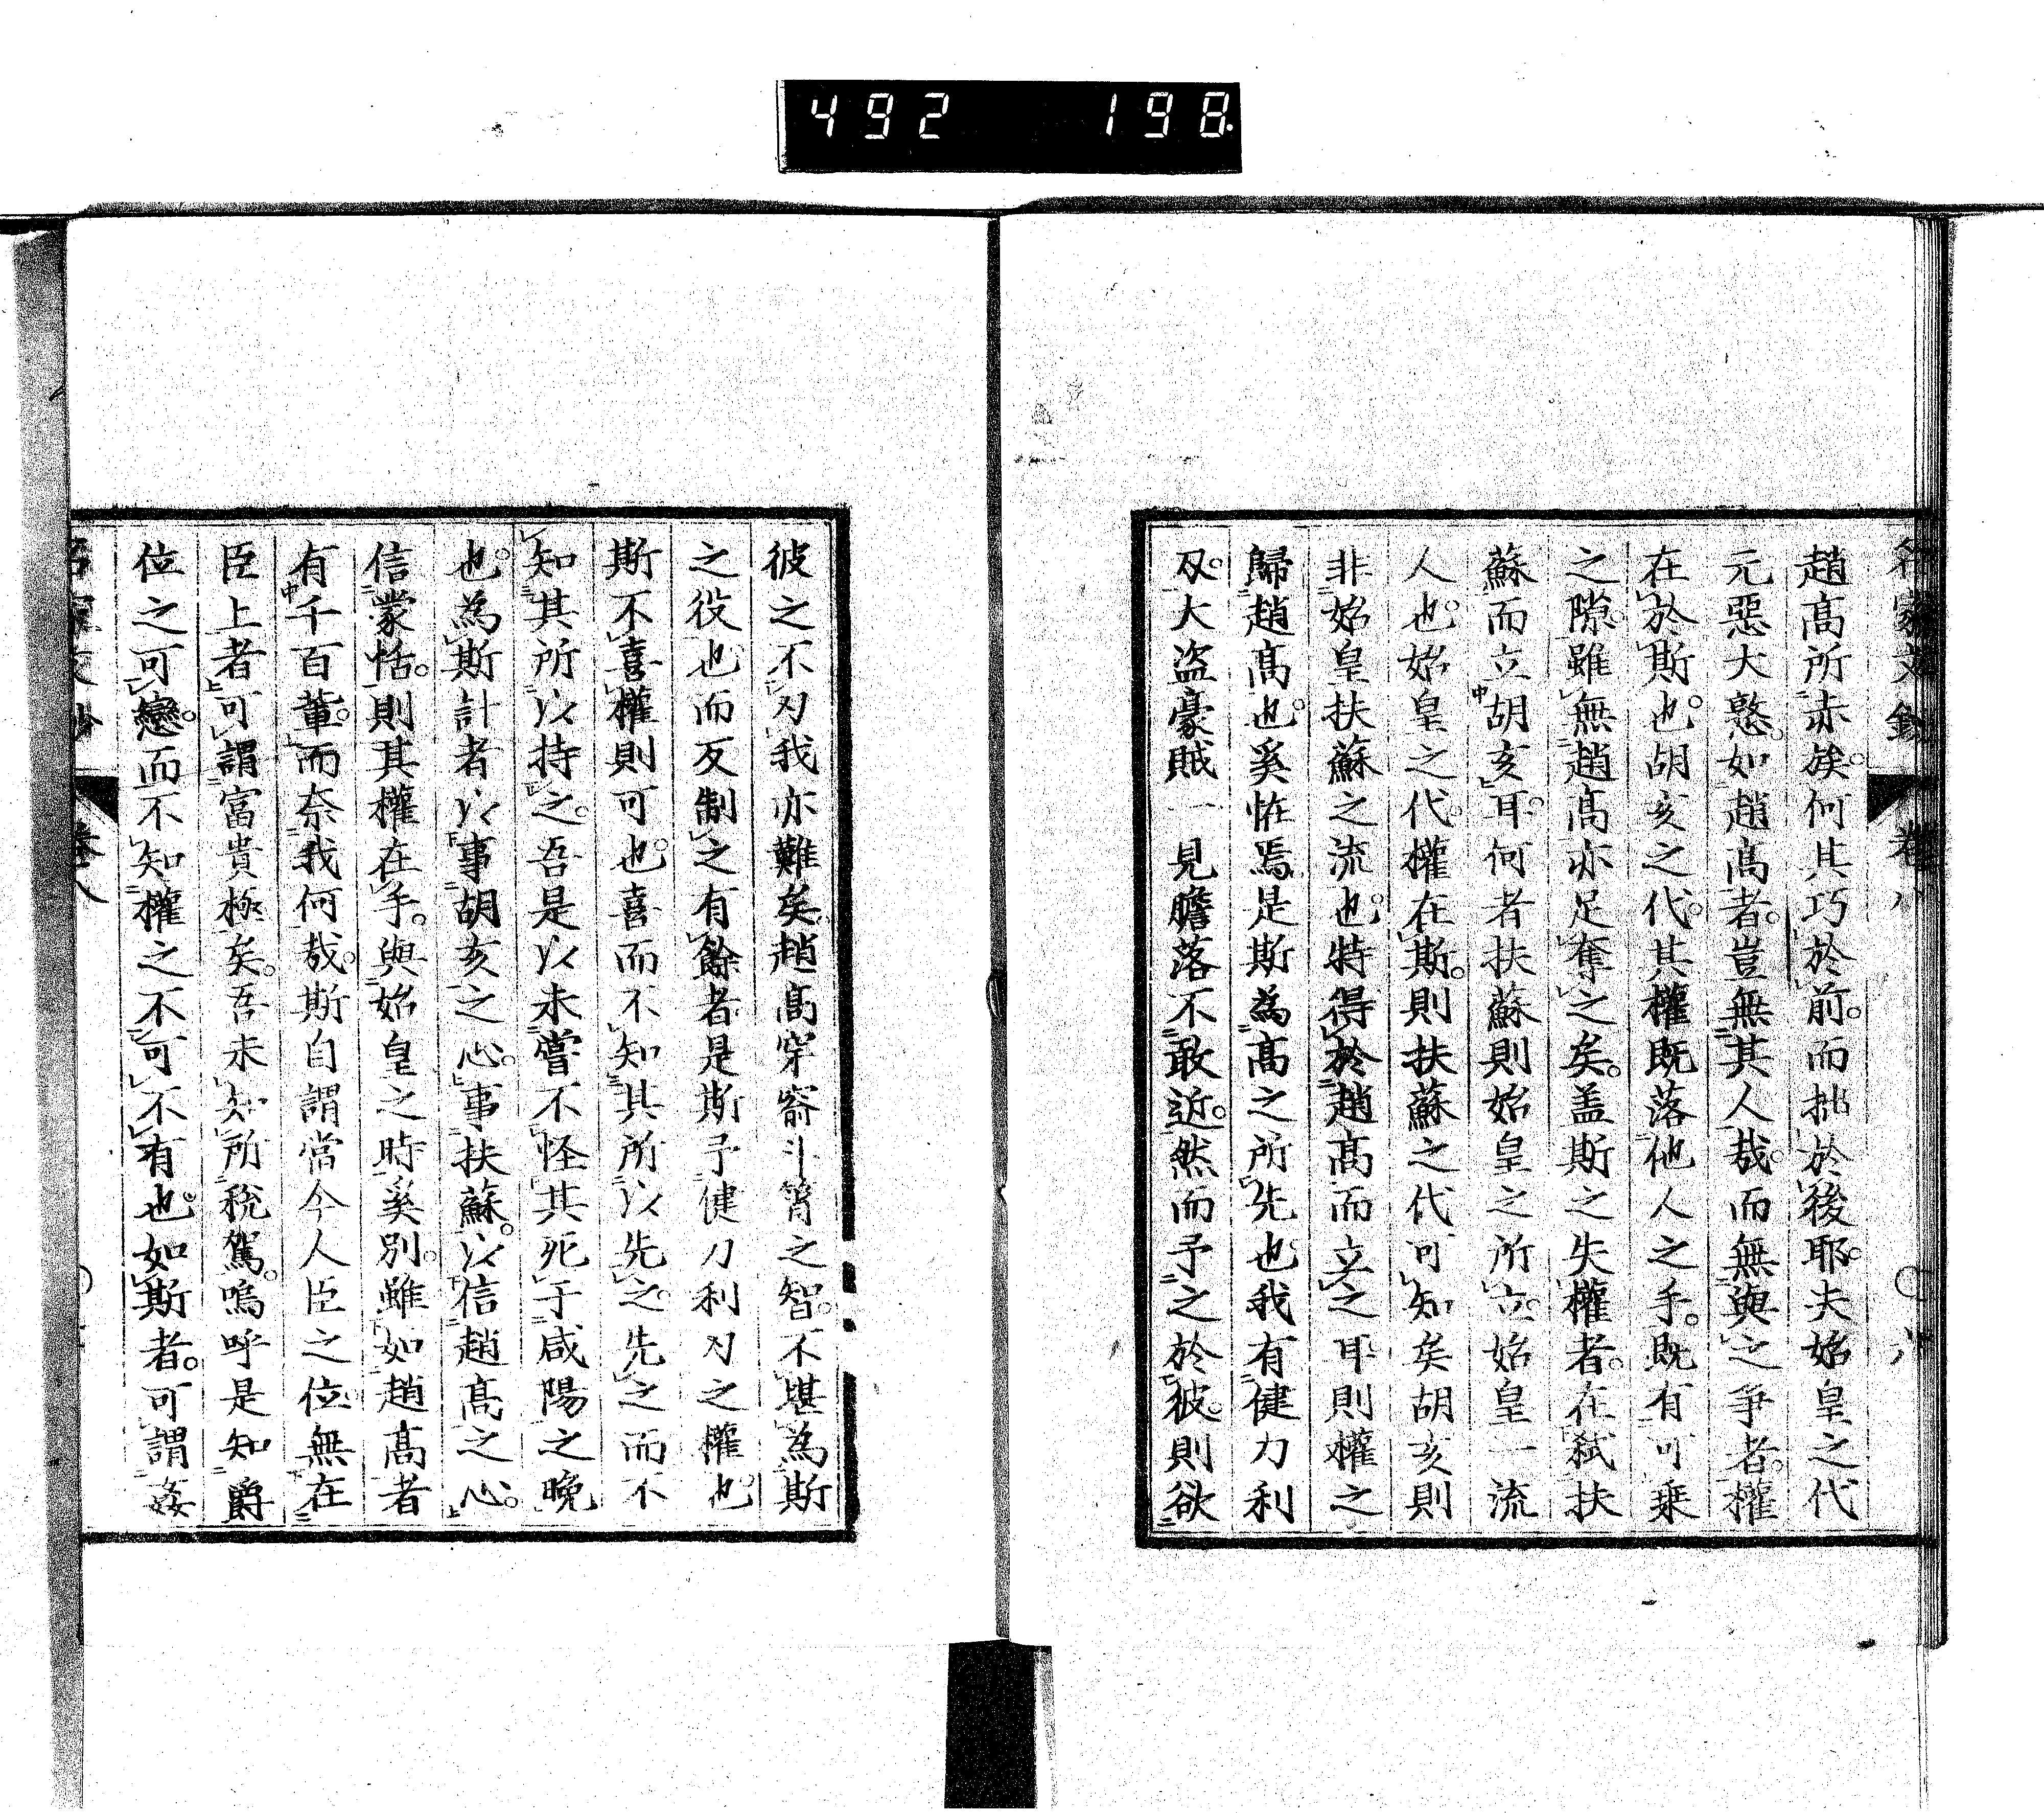 492 198
名家文鈔 卷八
趙高所赤族。何其巧於前。而拙於後耶。夫始皇之代
元惡大憝。如趙高者。豈無其人哉。而無與之爭者。權
在於斯也。胡亥之代。其權既落他人之手。既有可乘
之隙。雖無趙高亦足奪之矣。盖斯之失權者。在弑扶
蘇而立胡亥耳。何者扶蘇則始皇之所立。始皇一流
人也。始皇之代。權在斯。則扶蘇之代可知矣胡亥則
非始皇扶蘇之流也。特得於趙高而立之耳則權之
歸趙高也。奚恠焉是斯為高之所先也我有健力利
刄。大盜豪賊一見膽落不敢近。然而予之於彼。則欲
彼之不刃我亦難矣。趙高穿窬斗筲之智。不堪為斯
之役也而反制之有餘者是斯予健刀利刃之權也
斯不喜權則可也。喜而不知其所以先之。先之而不
知其所以持之。吾是以未嘗不怪其死于咸陽之晚
也。為斯計者以事胡亥之心。事扶蘇。以信趙高之心。
信蒙恬。則其權在手。與始皇之時奚別。雖如趙高者
有千百輩。而奈我何哉。斯自謂當今人臣之位無在
臣上者可謂富貴極矣。吾未知所稅駕。嗚呼是知爵
位之可戀。而不知權之不可不有也。如斯者。可謂姦
卷八